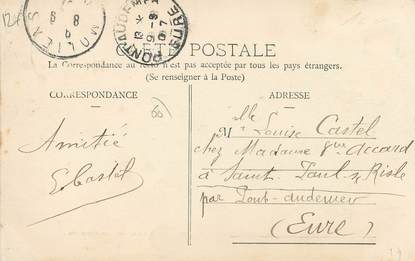 AMIENS
PONT-AUDEMER
EURE
CARTE POSTALE
La Correspondance au recto n'est pas acceptée par tous les pays étrangers.
(Se renseigner à la Poste)
CORRESPONDANCE
ADRESSE
Amitié
Castel
Mlle Louise Castel
chez Madame Accard
à Saint Paul s/ Risle
par Pont-audemer
(Eure)